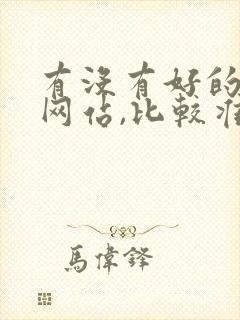 有没有好的
网估,比较准
馬偉鋒